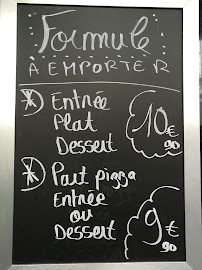 Formule
À EMPORTER
Entrée
Plat
Dessert
10€
90
Part pizza
Entrée
ou
Dessert
9€
90